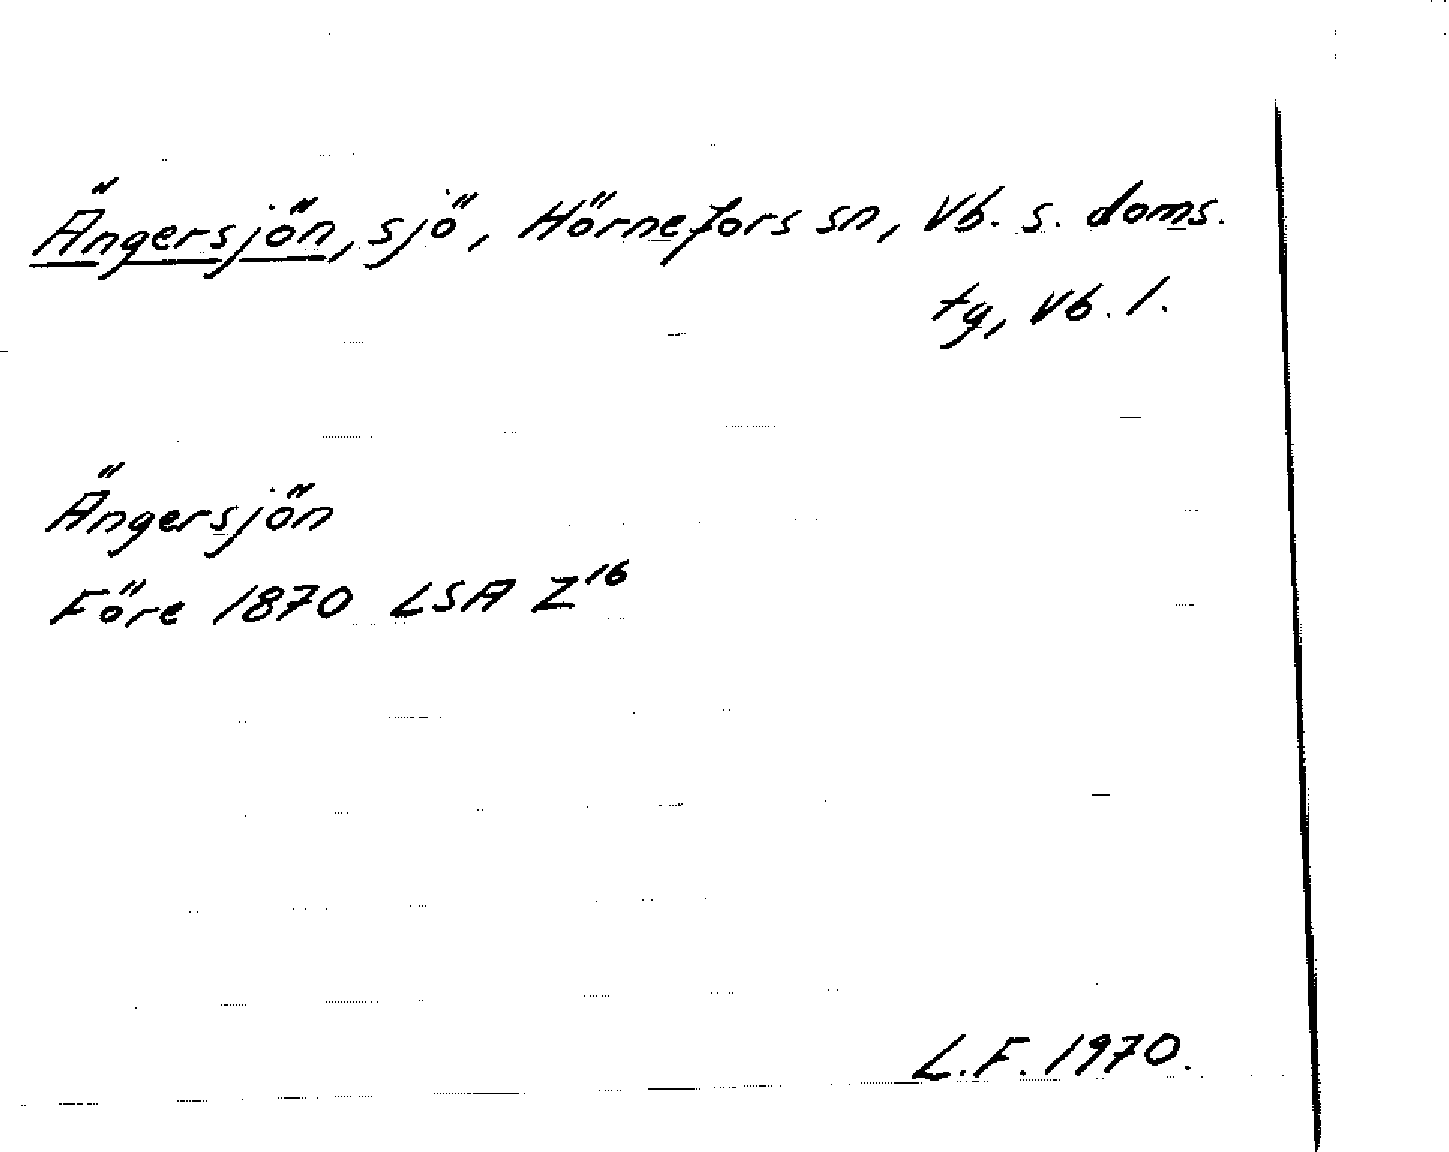 Ängersjön, sjö, Hörnefors sn, Vb. s. doms.
tg, Vb. l.
Ängersjön
Före 1870 LSA Z16
L.F. 1970.